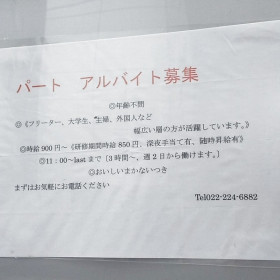 パート アルバイト募集
◎年齢不問
◎《フリーター、大学生、主婦、外国人など
幅広い層の方が活躍しています。》
◎時給900円～《研修期間時給850円、深夜手当て有、随時昇給有》
◎11：00～lastまで［3時間～、週2日から働けます。］
◎おいしいまかないつき
まずはお気軽にお電話ください
Tel022-224-6882